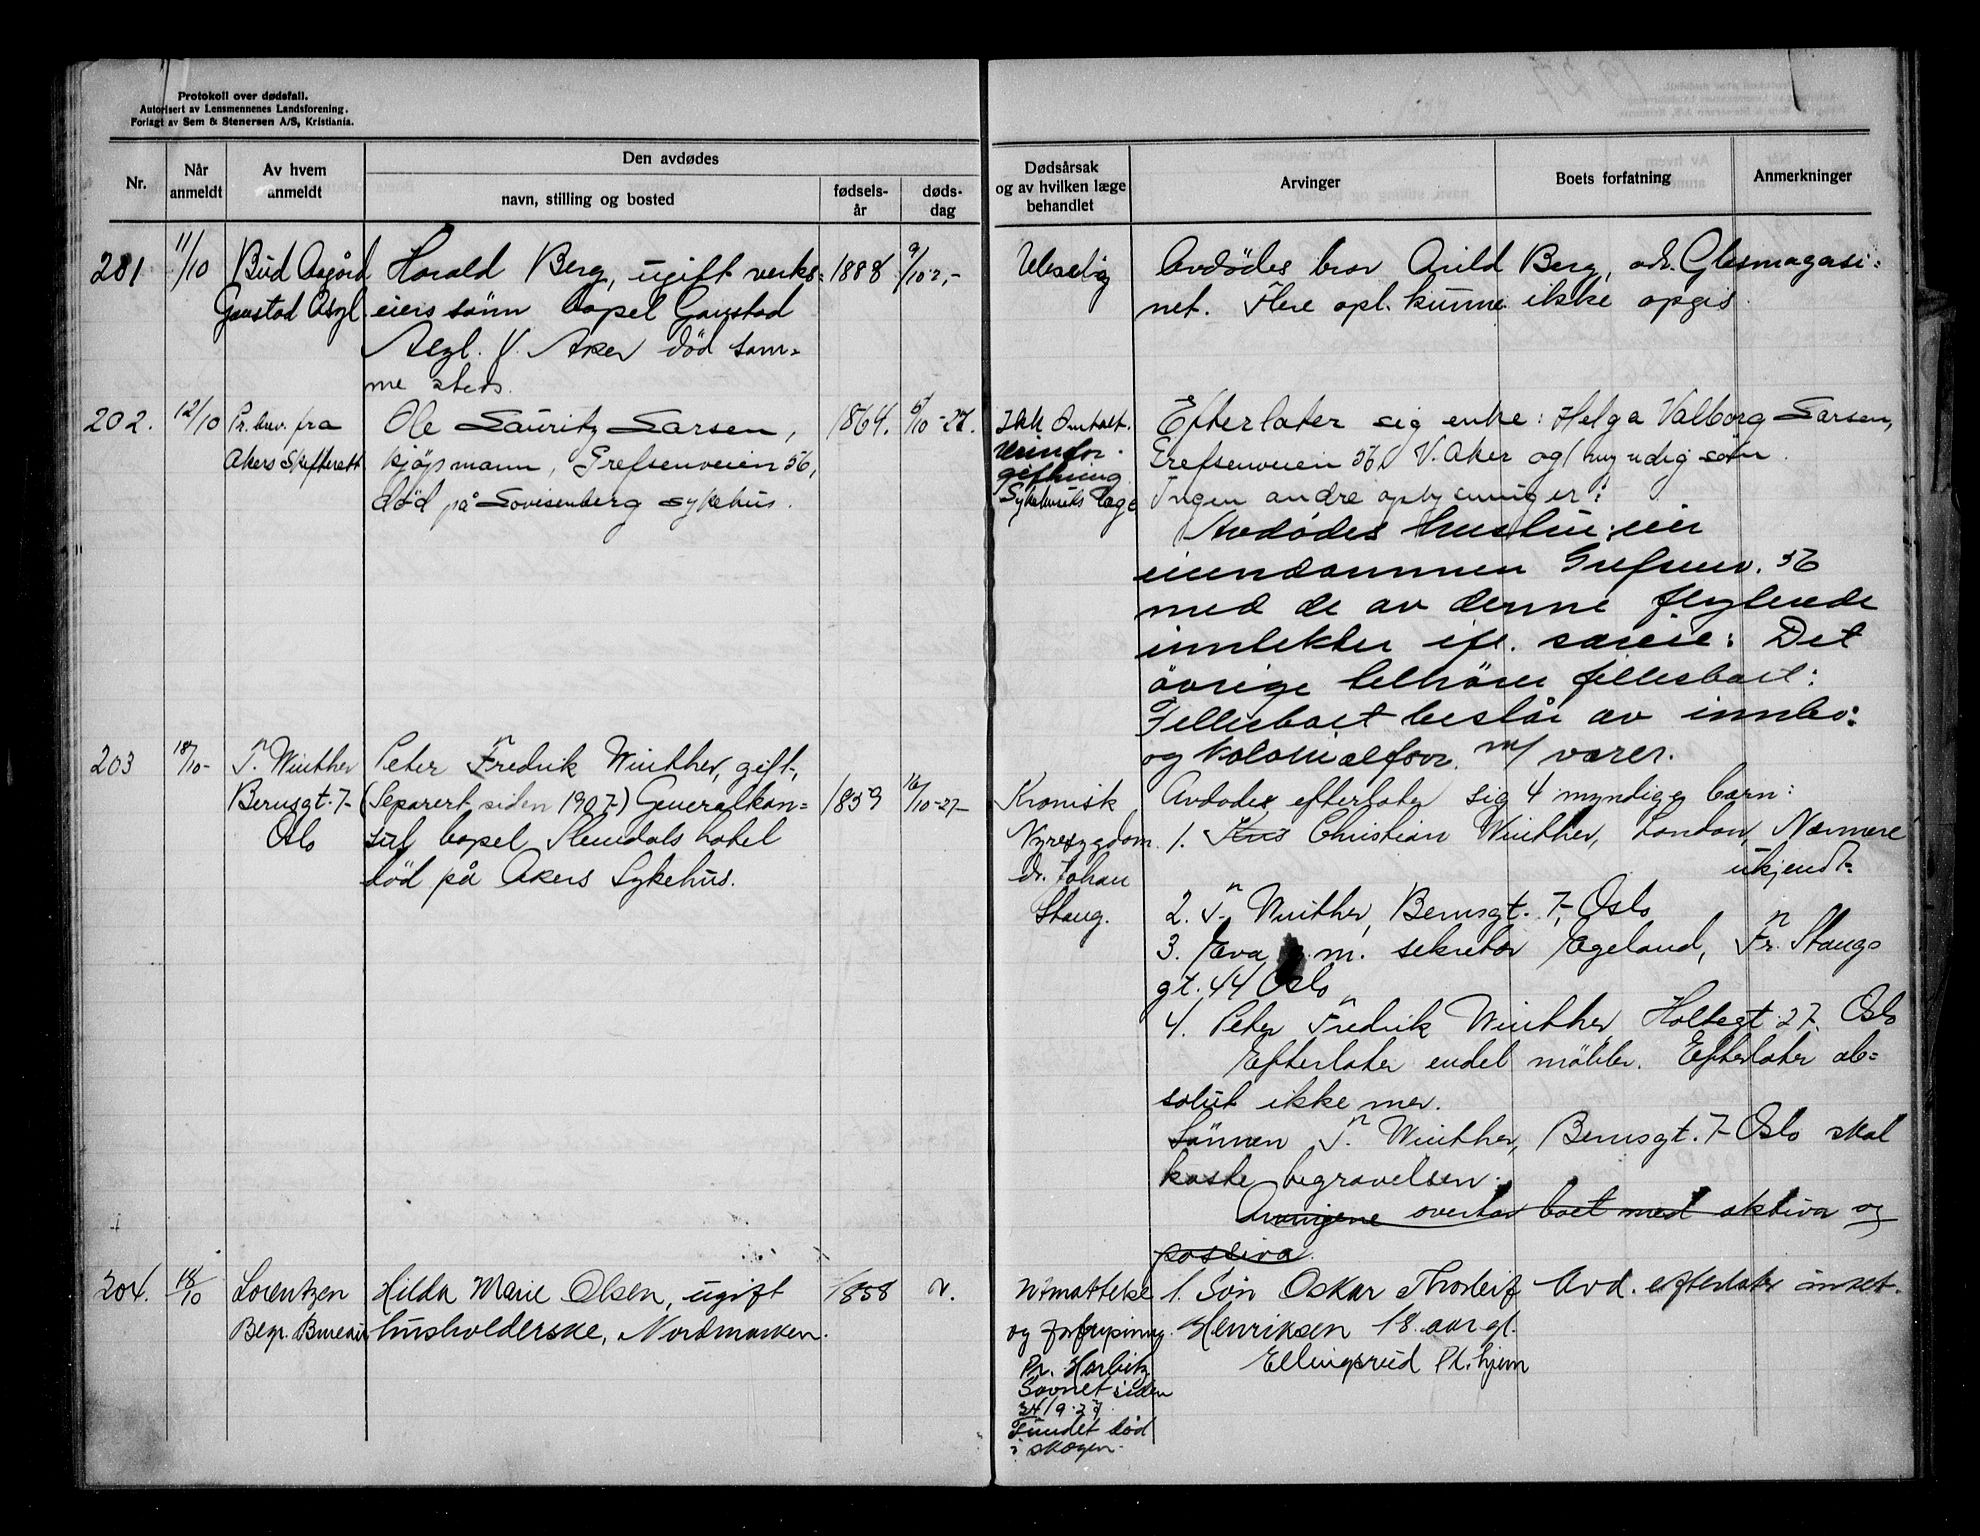 Protokoll over dødsfall.
Autorisert av Lensmennenes Landsforening.
Forlagt av Sem & Stenersen A/S, Kristiania.
Nr.
Når anmeldt
Av hvem anmeldt
Den avdødes
navn, stilling og bosted
fødsels-år
døds-dag
Dødsårsak og av hvilken læge behandlet
Arvinger
Boets forfatning
Anmerkninger
201
11/10
Bud Asgård
Gaustad Asyl.
Harald Berg, ugift verks=
eiers sönn bopel Gaustad
Asyl. V. Aker död sam=
me steds.
1888
9/10
Avdödes bror Arild Berg, adr. Glasmagasi=
net. Flere opl. kunne ikke opgis.
202.
12/10
Pr. brev fra
Akers Skifterett
Ole Lauritz Larsen,
kjöpmann, Grefsenveien 56,
död på Lovisenberg sykehus.
1864.
5/10-27.
Urinfor-
giftning
Sykehusets læge
Efterlater sig enke: Helga Valborg Larsen,
Grefsenveien 56, V. Aker og 1 myndig sön.
Ingen andre oplysninger:
Avdödes hustru eier
eiendommen Grefsenv. 56
med de av denne flytende
inntekter ifl. særeie: Det
övrige tilhörer fellesboet:
Fellesboet består av innbo:
og kolonialforr. m/ varer.
203
18/10-
T. Winther
Berusgt. 7-
Oslo
Peter Fredrik Winther, gift,
(Separert siden 1907-) Generalkon=
sul bopel Slemdals hotel
död på Akers Sykehus.
1859
16/10-27-
Kronisk
Nyresygdom.
dr. Johan
Stang.
Avdöde efterlater sig 4 myndige barn:
1. Christian Winther, London, Nærmere
ukjendt-
2. T. Winther, Berusgt. 7, Oslo
3. Eva g. m. sekretær Egeland, Fr. Stangs
gt. 44 Oslo
4. Peter Fredrik Winther Holtegt. 27. Oslo
Efterlater endel möbler. Efterlater ab=
solut ikke mer.
Sönnen T. Winther, Berusgt. 7- Oslo skal
koste begravelsen.
Arvingene overtar boet med aktiva og
passiva.
204.
18/10
Lorentzen
Begr. Bureau
Hilda Marie Olsen, ugift
husholderske, Nordmarken.
1858
Utmattelse
og forfrysning.
Pr. Harbitz
Savnet siden
24/9-27.
Fundet död
i skogen.
1. Sön Oskar Thorleif
Henriksen 18 aar gl.
Ellingsrud Pl. hjem
Avd. efterlater intet.